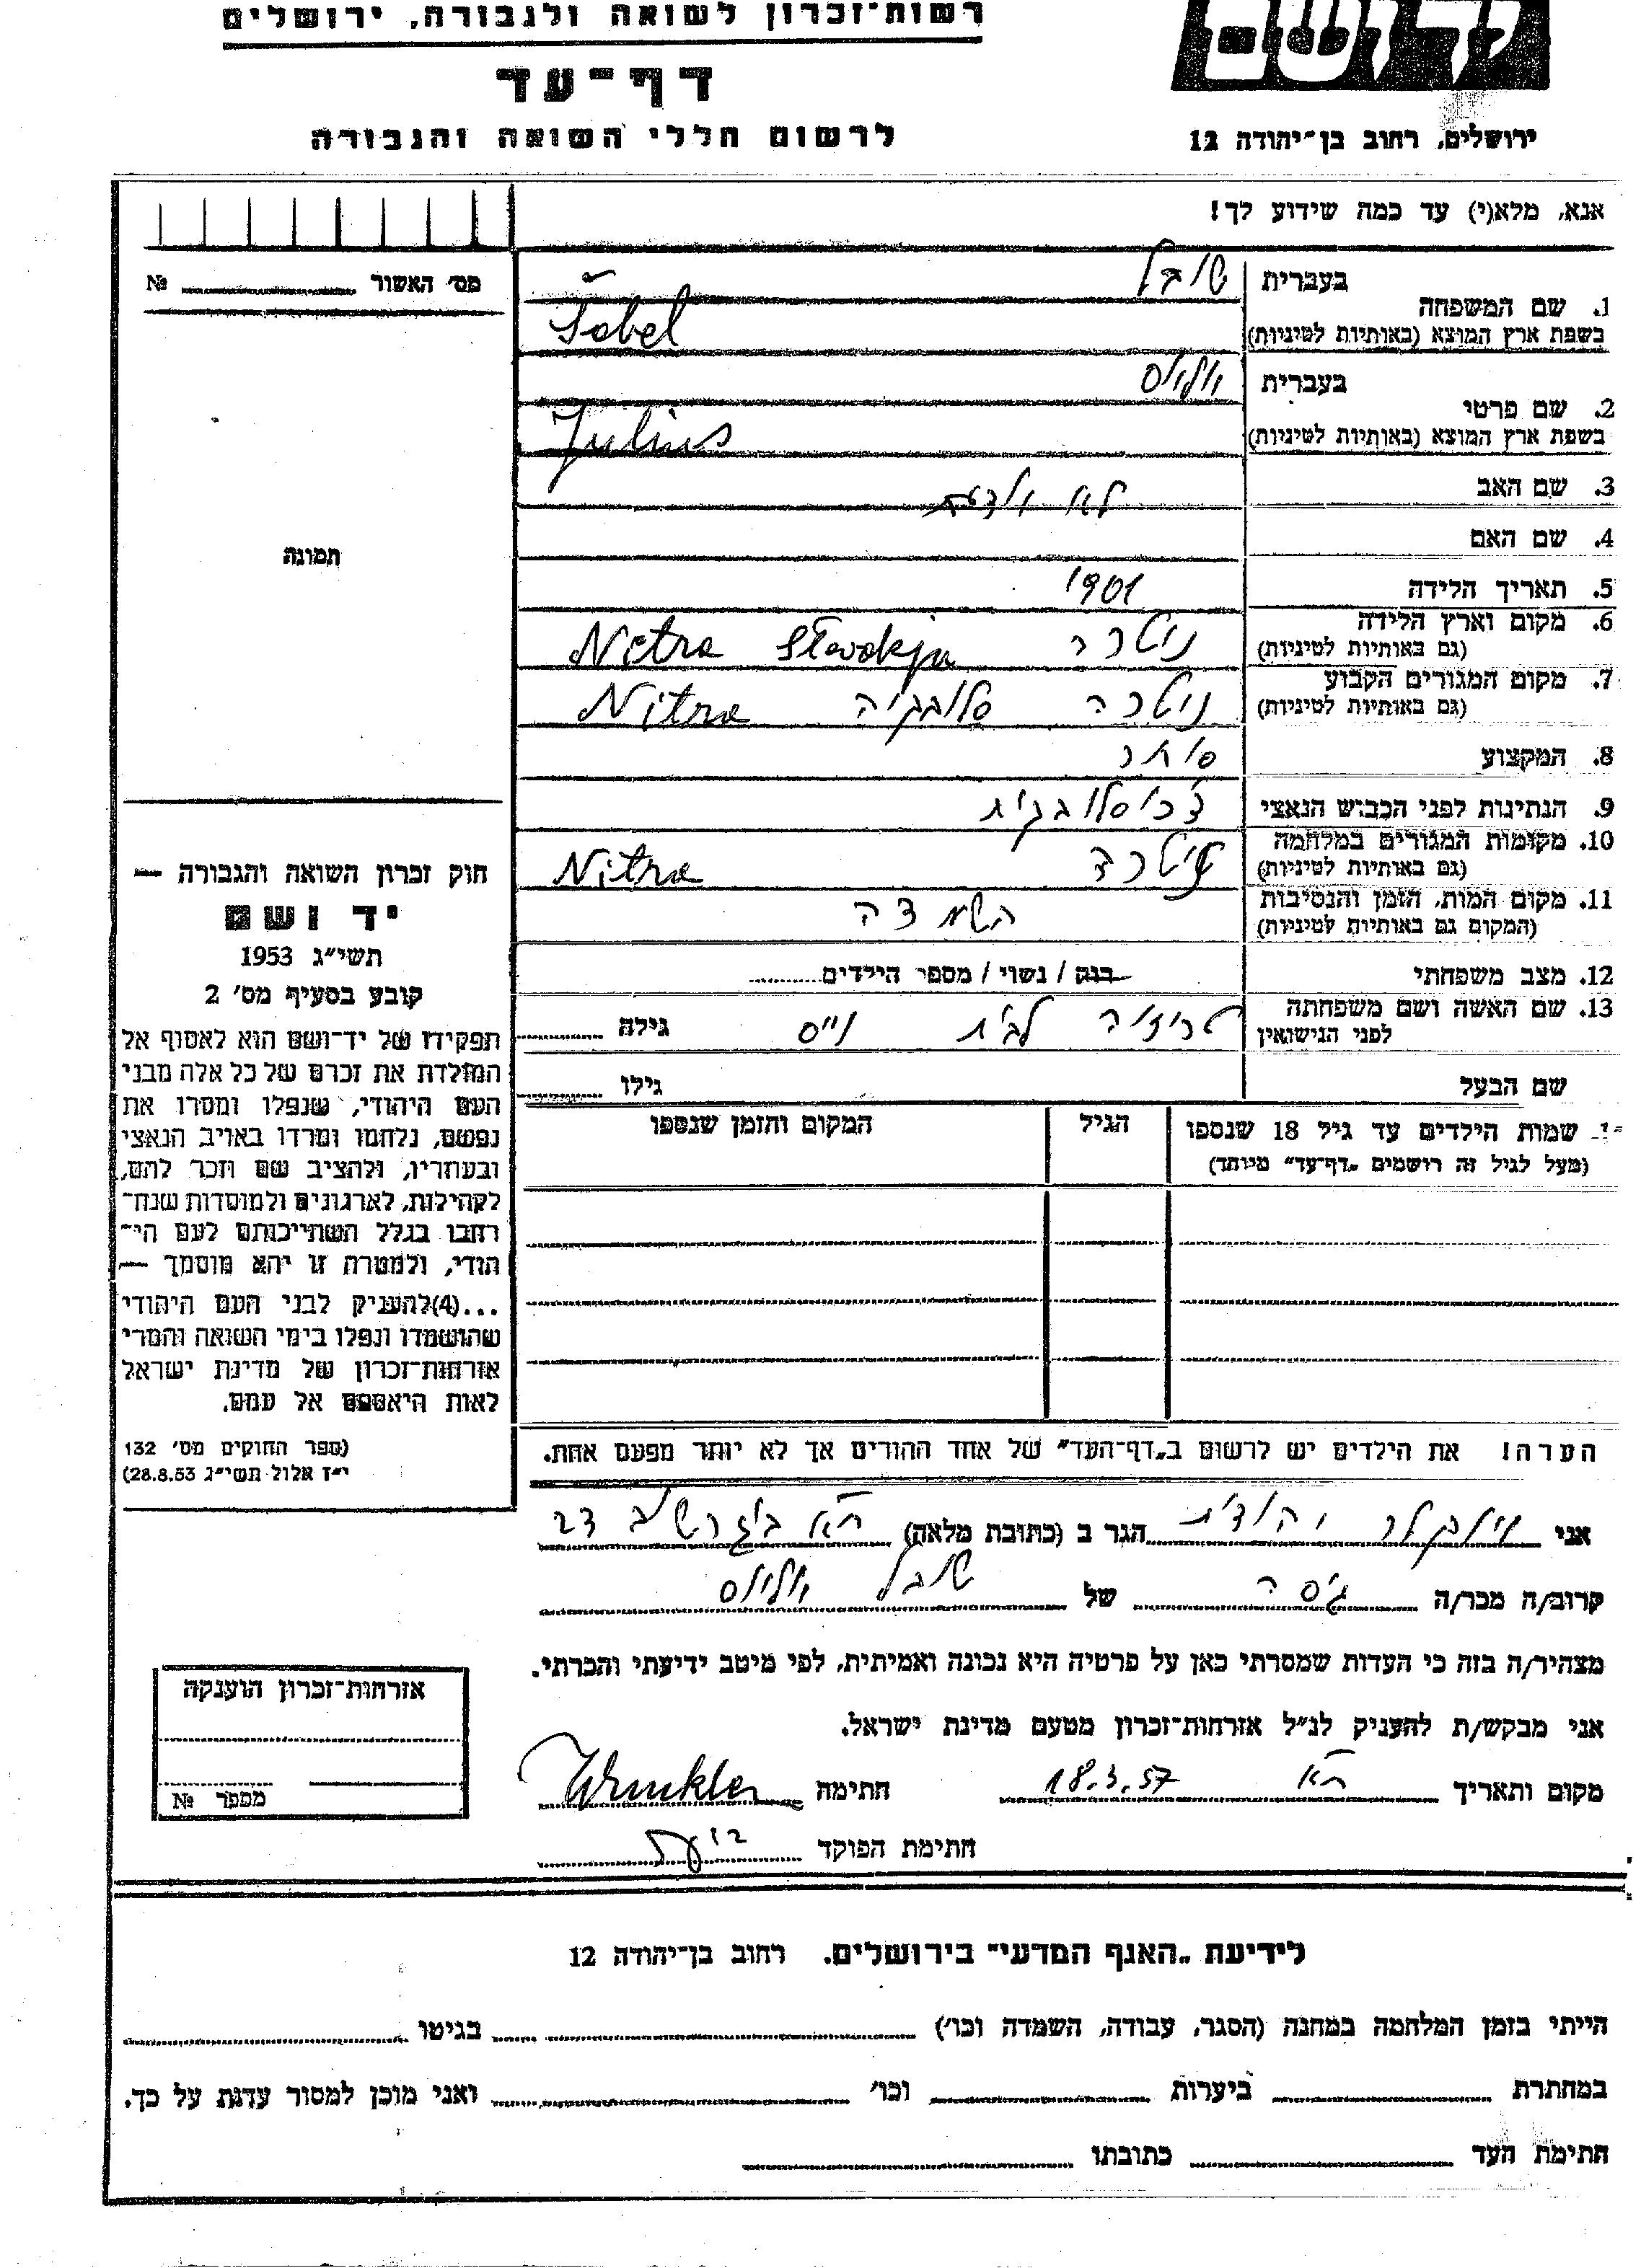 רשות־זכרון לשואה ולגבורה, ירושלים
יד ושם
דף־עד
לרשום חללי השואה והגבורה
ירושלים, רחוב בן־יהודה 12
אנא, מלא(י) עד כמה שידוע לך!
מס׳ האשור № ........
תמונה
חוק זכרון השואה והגבורה —
יד ושם
תשי״ג 1953
קובע בסעיף מס׳ 2
תפקידו של יד־ושם הוא לאסוף אל
המולדת את זכרם של כל אלה מבני
העם היהודי, שנפלו ומסרו את
נפשם, נלחמו ומרדו באויב הנאצי
ובעוזריו, ולהציב שם וזכר להם,
לקהילות, לארגונים ולמוסדות שנח־
רבו בגלל השתייכותם לעם הי־
הודי, ולמטרה זו יהא מוסמך —
...(4)להעניק לבני העם היהודי
שהושמדו ונפלו בימי השואה והמרי
אזרחות־זכרון של מדינת ישראל
לאות היאספם אל עמם.
(ספר החוקים מס׳ 132
י״ז אלול תשי״ג 28.8.53)
1. שם המשפחה
בעברית שובל
בשפת ארץ המוצא (באותיות לטיניות) Šobel
2. שם פרטי
בעברית יוליוס
בשפת ארץ המוצא (באותיות לטיניות) Julius
3. שם האב לא יודעת
4. שם האם
5. תאריך הלידה 1901
6. מקום וארץ הלידה (גם באותיות לטיניות) ניטרה Slovakija Nitra
7. מקום המגורים הקבוע (גם באותיות לטיניות) ניטרה סלובקיה Nitra
8. המקצוע סוחר
9. הנתינות לפני הכבוש הנאצי צ׳כוסלובקית
10. מקומות המגורים במלחמה (גם באותיות לטיניות) ניטרה Nitra
11. מקום המות, הזמן והנסיבות (המקום גם באותיות לטיניות) השמדה
12. מצב משפחתי רווק / נשוי / מספר הילדים........
13. שם האשה ושם משפחתה לפני הנישואין טרזיה לבית וייס גילה ........
שם הבעל גילו ........
שמות הילדים עד גיל 18 שנספו
(מעל לגיל זה רושמים „דף־עד״ מיוחד)
הגיל
המקום והזמן שנספו
הערה! את הילדים יש לרשום ב„דף־העד״ של אחד ההורים אך לא יותר מפעם אחת.
אני וינקלר יהודית הגר ב (כתובת מלאה) ת״א 23
קרוב/ה מכר/ה גיסה של שובל יוליוס
מצהיר/ה בזה כי העדות שמסרתי כאן על פרטיה היא נכונה ואמיתית, לפי מיטב ידיעתי והכרתי.
אני מבקש/ת להעניק לנ״ל אזרחות־זכרון מטעם מדינת ישראל.
מקום ותאריך ת״א 18.3.57 חתימה Winkler
חתימת הפוקד
אזרחות־זכרון הוענקה
מספר №
לידיעת „האגף המדעי״ בירושלים, רחוב בן־יהודה 12
הייתי בזמן המלחמה במחנה (הסגר, עבודה, השמדה וכו׳) ........ בגיטו ........
במחתרת ........ ביערות ........ וכו׳ ........ ואני מוכן למסור עדות על כך.
חתימת העד ........ כתובתו ........